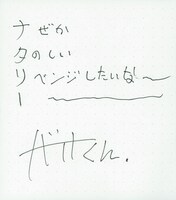 ナぜか
タのしい
リベンジしたいな!〜
ー